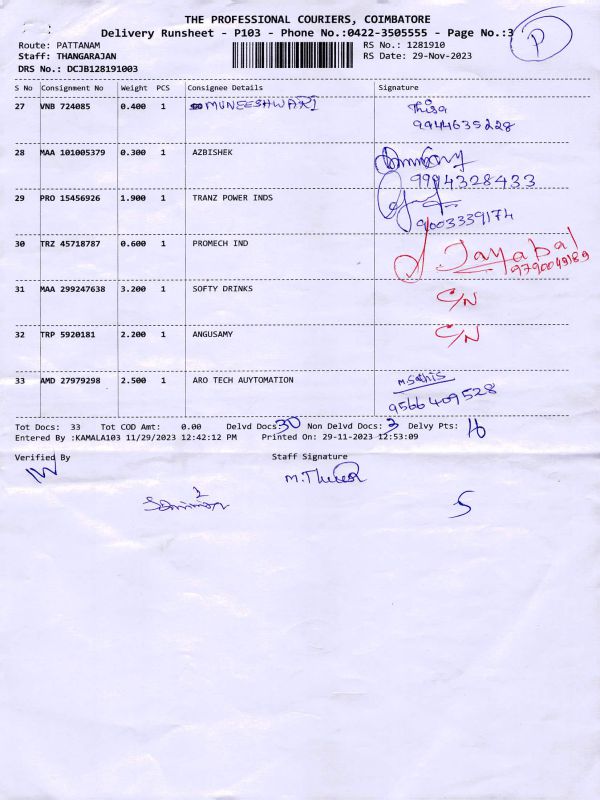 THE PROFESSIONAL COURIERS, COIMBATORE
Delivery Runsheet - P103 - Phone No.:0422-3505555 - Page No.:3
P
Route: PATTANAM RS No.: 1281910
Staff: THANGARAJAN RS Date: 29-Nov-2023
DRS No.: DCJB128191003
S No Consignment No Weight PCS Consignee Details Signature
27 VNB 724085 0.400 1 MUNEESHWARI
9944635228
28 MAA 101005379 0.300 1 AZBISHEK
9994328433
29 PRO 15456926 1.900 1 TRANZ POWER INDS
9003339174
30 TRZ 45718787 0.600 1 PROMECH IND Jayabal
9790049189
31 MAA 299247638 3.200 1 SOFTY DRINKS C/N
32 TRP 5920181 2.200 1 ANGUSAMY C/N
33 AMD 27979298 2.500 1 ARO TECH AUYTOMATION M.Sathis
9566409528
Tot Docs: 33 Tot COD Amt: 0.00 Delvd Docs: 30 Non Delvd Docs: 3 Delvy Pts: 16
Entered By :KAMALA103 11/29/2023 12:42:12 PM Printed On: 29-11-2023 12:53:09
Verified By Staff Signature